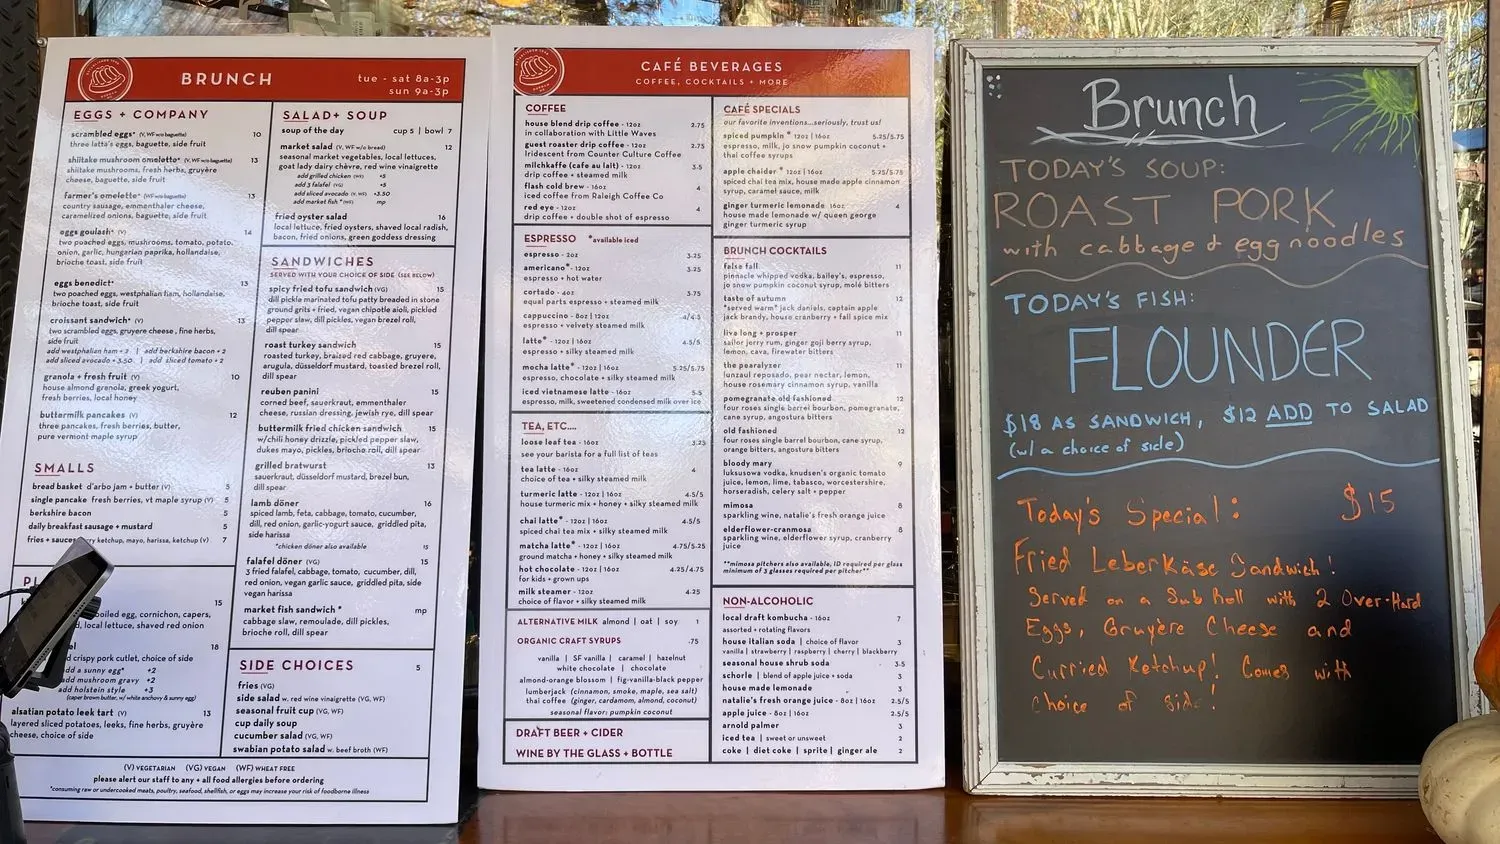 BRUNCH
tue - sat 8a-3p
sun 9a-3p
EGGS + COMPANY
scrambled eggs* (V, WF w/o baguette) 10
three latta's eggs, baguette, side fruit
shiitake mushroom omelette* (V, WF w/o baguette) 13
shiitake mushrooms, fresh herbs, gruyère
cheese, baguette, side fruit
farmer's omelette* (WF w/o baguette) 13
country sausage, emmenthaler cheese,
caramelized onions, baguette, side fruit
eggs goulash* (V) 14
two poached eggs, mushrooms, tomato, potato,
onion, garlic, hungarian paprika, hollandaise,
brioche toast, side fruit
eggs benedict* 13
two poached eggs, westphalian ham, hollandaise,
brioche toast, side fruit
croissant sandwich* (V) 13
two scrambled eggs, gruyere cheese, fine herbs,
side fruit
add westphalian ham + 2 | add berkshire bacon + 2
add sliced avocado + 3.50 | add sliced tomato + 2
granola + fresh fruit (V) 10
house almond granola, greek yogurt,
fresh berries, local honey
buttermilk pancakes (V) 12
three pancakes, fresh berries, butter,
pure vermont maple syrup
SMALLS
bread basket d'arbo jam + butter (V) 5
single pancake fresh berries, vt maple syrup (V) 5
berkshire bacon 5
daily breakfast sausage + mustard 5
fries + sauces curry ketchup, mayo, harissa, ketchup (V) 7
15
boiled egg, cornichon, capers,
local lettuce, shaved red onion
18
crispy pork cutlet, choice of side
add a sunny egg* +2
add mushroom gravy +2
add holstein style +3
(caper brown butter, w/ white anchovy & sunny egg)
alsatian potato leek tart (V) 13
layered sliced potatoes, leeks, fine herbs, gruyère
cheese, choice of side
SALAD+ SOUP
soup of the day cup 5 | bowl 7
market salad (V, WF w/o bread) 12
seasonal market vegetables, local lettuces,
goat lady dairy chèvre, red wine vinaigrette
add grilled chicken (WF) +5
add 3 falafel (VG) +5
add sliced avocado (V, WF) +3.50
add market fish * (WF) mp
fried oyster salad 16
local lettuce, fried oysters, shaved local radish,
bacon, fried onions, green goddess dressing
SANDWICHES
SERVED WITH YOUR CHOICE OF SIDE (SEE BELOW)
spicy fried tofu sandwich (VG) 15
dill pickle marinated tofu patty breaded in stone
ground grits + fried, vegan chipotle aioli, pickled
pepper slaw, dill pickles, vegan brezel roll,
dill spear
roast turkey sandwich 15
roasted turkey, braised red cabbage, gruyere,
arugula, düsseldorf mustard, toasted brezel roll,
dill spear
reuben panini 15
corned beef, sauerkraut, emmenthaler
cheese, russian dressing, jewish rye, dill spear
buttermilk fried chicken sandwich 15
w/chili honey drizzle, pickled pepper slaw,
dukes mayo, pickles, brioche roll, dill spear
grilled bratwurst 13
sauerkraut, düsseldorf mustard, brezel bun,
dill spear
lamb döner 16
spiced lamb, feta, cabbage, tomato, cucumber,
dill, red onion, garlic-yogurt sauce, griddled pita,
side harissa
*chicken döner also available 15
falafel döner (VG) 15
3 fried falafel, cabbage, tomato, cucumber, dill,
red onion, vegan garlic sauce, griddled pita, side
vegan harissa
market fish sandwich * mp
cabbage slaw, remoulade, dill pickles,
brioche roll, dill spear
SIDE CHOICES 5
fries (VG)
side salad w. red wine vinaigrette (VG, WF)
seasonal fruit cup (VG, WF)
cup daily soup
cucumber salad (VG, WF)
swabian potato salad w. beef broth (WF)
(V) VEGETARIAN (VG) VEGAN (WF) WHEAT FREE
please alert our staff to any + all food allergies before ordering
*consuming raw or undercooked meats, poultry, seafood, shellfish, or eggs may increase your risk of foodborne illness
CAFÉ BEVERAGES
COFFEE, COCKTAILS + MORE
COFFEE
house blend drip coffee - 12oz 2.75
in collaboration with Little Waves
guest roaster drip coffee - 12oz 2.75
Iridescent from Counter Culture Coffee
milchkaffe (cafe au lait) - 12oz 3.5
drip coffee + steamed milk
flash cold brew - 16oz 4
iced coffee from Raleigh Coffee Co
red eye - 12oz 4
drip coffee + double shot of espresso
ESPRESSO *available iced
espresso - 2oz 3.25
americano* - 12oz 3.25
espresso + hot water
cortado - 4oz 3.75
equal parts espresso + steamed milk
cappuccino - 8oz | 12oz 4/4.5
espresso + velvety steamed milk
latte* - 12oz | 16oz 4.5/5
espresso + silky steamed milk
mocha latte* - 12oz | 16oz 5.25/5.75
espresso, chocolate + silky steamed milk
iced vietnamese latte - 16oz 5.5
espresso, milk, sweetened condensed milk over ice
TEA, ETC....
loose leaf tea - 16oz 3.25
see your barista for a full list of teas
tea latte - 16oz 4
choice of tea + silky steamed milk
turmeric latte - 12oz | 16oz 4.5/5
house turmeric mix + honey + silky steamed milk
chai latte* - 12oz | 16oz 4.5/5
spiced chai tea mix + silky steamed milk
matcha latte* - 12oz | 16oz 4.75/5.25
ground matcha + honey + silky steamed milk
hot chocolate - 12oz | 16oz 4.25/4.75
for kids + grown ups
milk steamer - 12oz 4.25
choice of flavor + silky steamed milk
ALTERNATIVE MILK almond | oat | soy 1
ORGANIC CRAFT SYRUPS .75
vanilla | SF vanilla | caramel | hazelnut
white chocolate | chocolate
almond-orange blossom | fig-vanilla-black pepper
lumberjack (cinnamon, smoke, maple, sea salt)
thai coffee (ginger, cardamom, almond, coconut)
seasonal flavor: pumpkin coconut
DRAFT BEER + CIDER
WINE BY THE GLASS + BOTTLE
CAFÉ SPECIALS
our favorite inventions...seriously, trust us!
spiced pumpkin * 12oz | 16oz 5.25/5.75
espresso, milk, jo snow pumpkin coconut +
thai coffee syrups
apple chaider * 12oz | 16oz 5.25/5.75
spiced chai tea mix, house made apple cinnamon
syrup, caramel sauce, milk
ginger turmeric lemonade 16oz 4
house made lemonade w/ queen george
ginger turmeric syrup
BRUNCH COCKTAILS
false fall 11
pinnacle whipped vodka, bailey's, espresso,
jo snow pumpkin coconut syrup, molé bitters
taste of autumn 12
*served warm* jack daniels, captain apple
jack brandy, house cranberry + fall spice mix
live long + prosper 11
sailor jerry rum, ginger goji berry syrup,
lemon, cava, firewater bitters
the pearalyzer 11
lunzaul reposado, pear nectar, lemon,
house rosemary cinnamon syrup, vanilla
pomegranate old fashioned 12
four roses single barrel bourbon, pomegranate,
cane syrup, angostura bitters
old fashioned 12
four roses single barrel bourbon, cane syrup,
orange bitters, angostura bitters
bloody mary 9
luksusowa vodka, knudsen's organic tomato
juice, lemon, lime, tabasco, worcestershire,
horseradish, celery salt + pepper
mimosa 8
sparkling wine, natalie's fresh orange juice
elderflower-cranmosa 8
sparkling wine, elderflower syrup, cranberry
juice
**mimosa pitchers also available, ID required per glass
minimum of 3 glasses required per pitcher**
NON-ALCOHOLIC
local draft kombucha - 16oz 7
assorted + rotating flavors
house italian soda | choice of flavor 3
vanilla | strawberry | raspberry | cherry | blackberry
seasonal house shrub soda 3.5
schorle | blend of apple juice + soda 3
house made lemonade 3
natalie's fresh orange juice - 8oz | 16oz 2.5/5
apple juice - 8oz | 16oz 2.5/5
arnold palmer 3
iced tea | sweet or unsweet 2
coke | diet coke | sprite | ginger ale 2
Brunch
TODAY'S SOUP:
ROAST PORK
with cabbage & egg noodles
TODAY'S FISH:
FLOUNDER
$18 AS SANDWICH, $12 ADD TO SALAD
(w/ a choice of side)
Today's Special: $15
Fried Leberkäse Sandwich!
Served on a Sub Roll with 2 Over-Hard
Eggs, Gruyère Cheese and
Curried Ketchup! Comes with
choice of side!